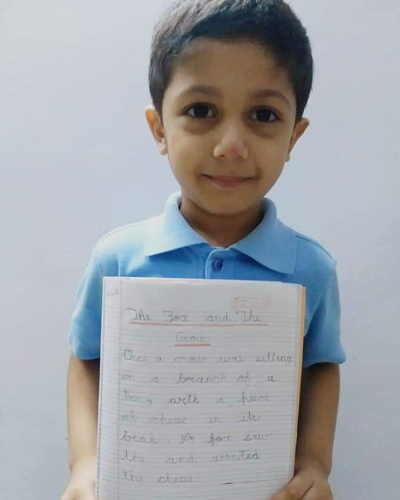 The Fox and The
Crow
Once a crow was sitting
on a branch of a
Tree with a piece
of chese in its
beak. A fox saw
the and wanted
the chese